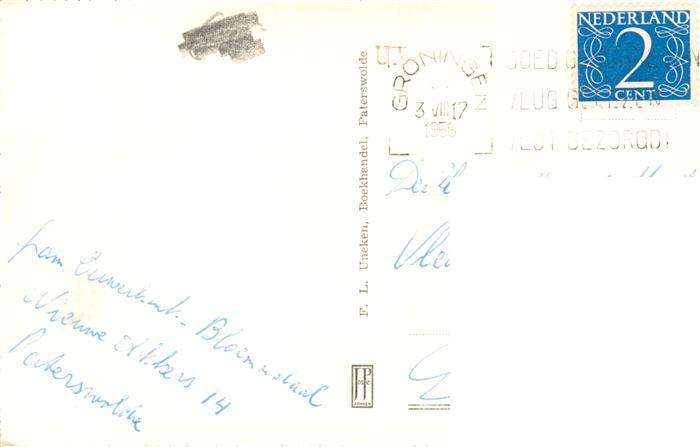 NEDERLAND
2
CENT
GRONINGEN
3 VIII 17
1956
GOED
VLUG
VLOT BEZORGD!
F. L. Uneken, Boekhandel, Paterswolde
fam. Ouwerkerk - Bloemendaal
Nieuwe Akkers 14
Paterswolde